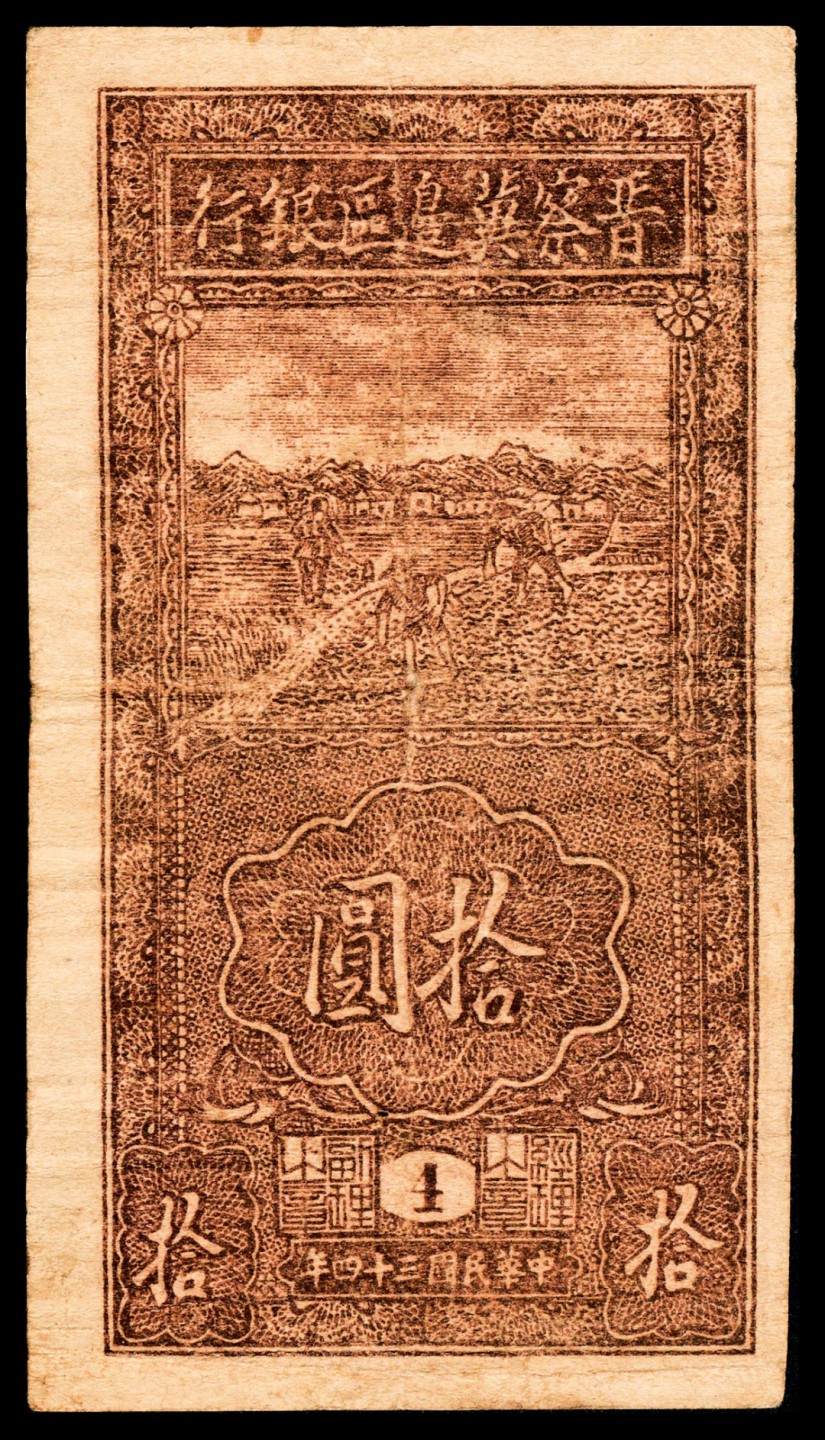 晋察冀邊區銀行
拾圓
經理之章
4
副理之章
拾
中華民國三十四年
拾